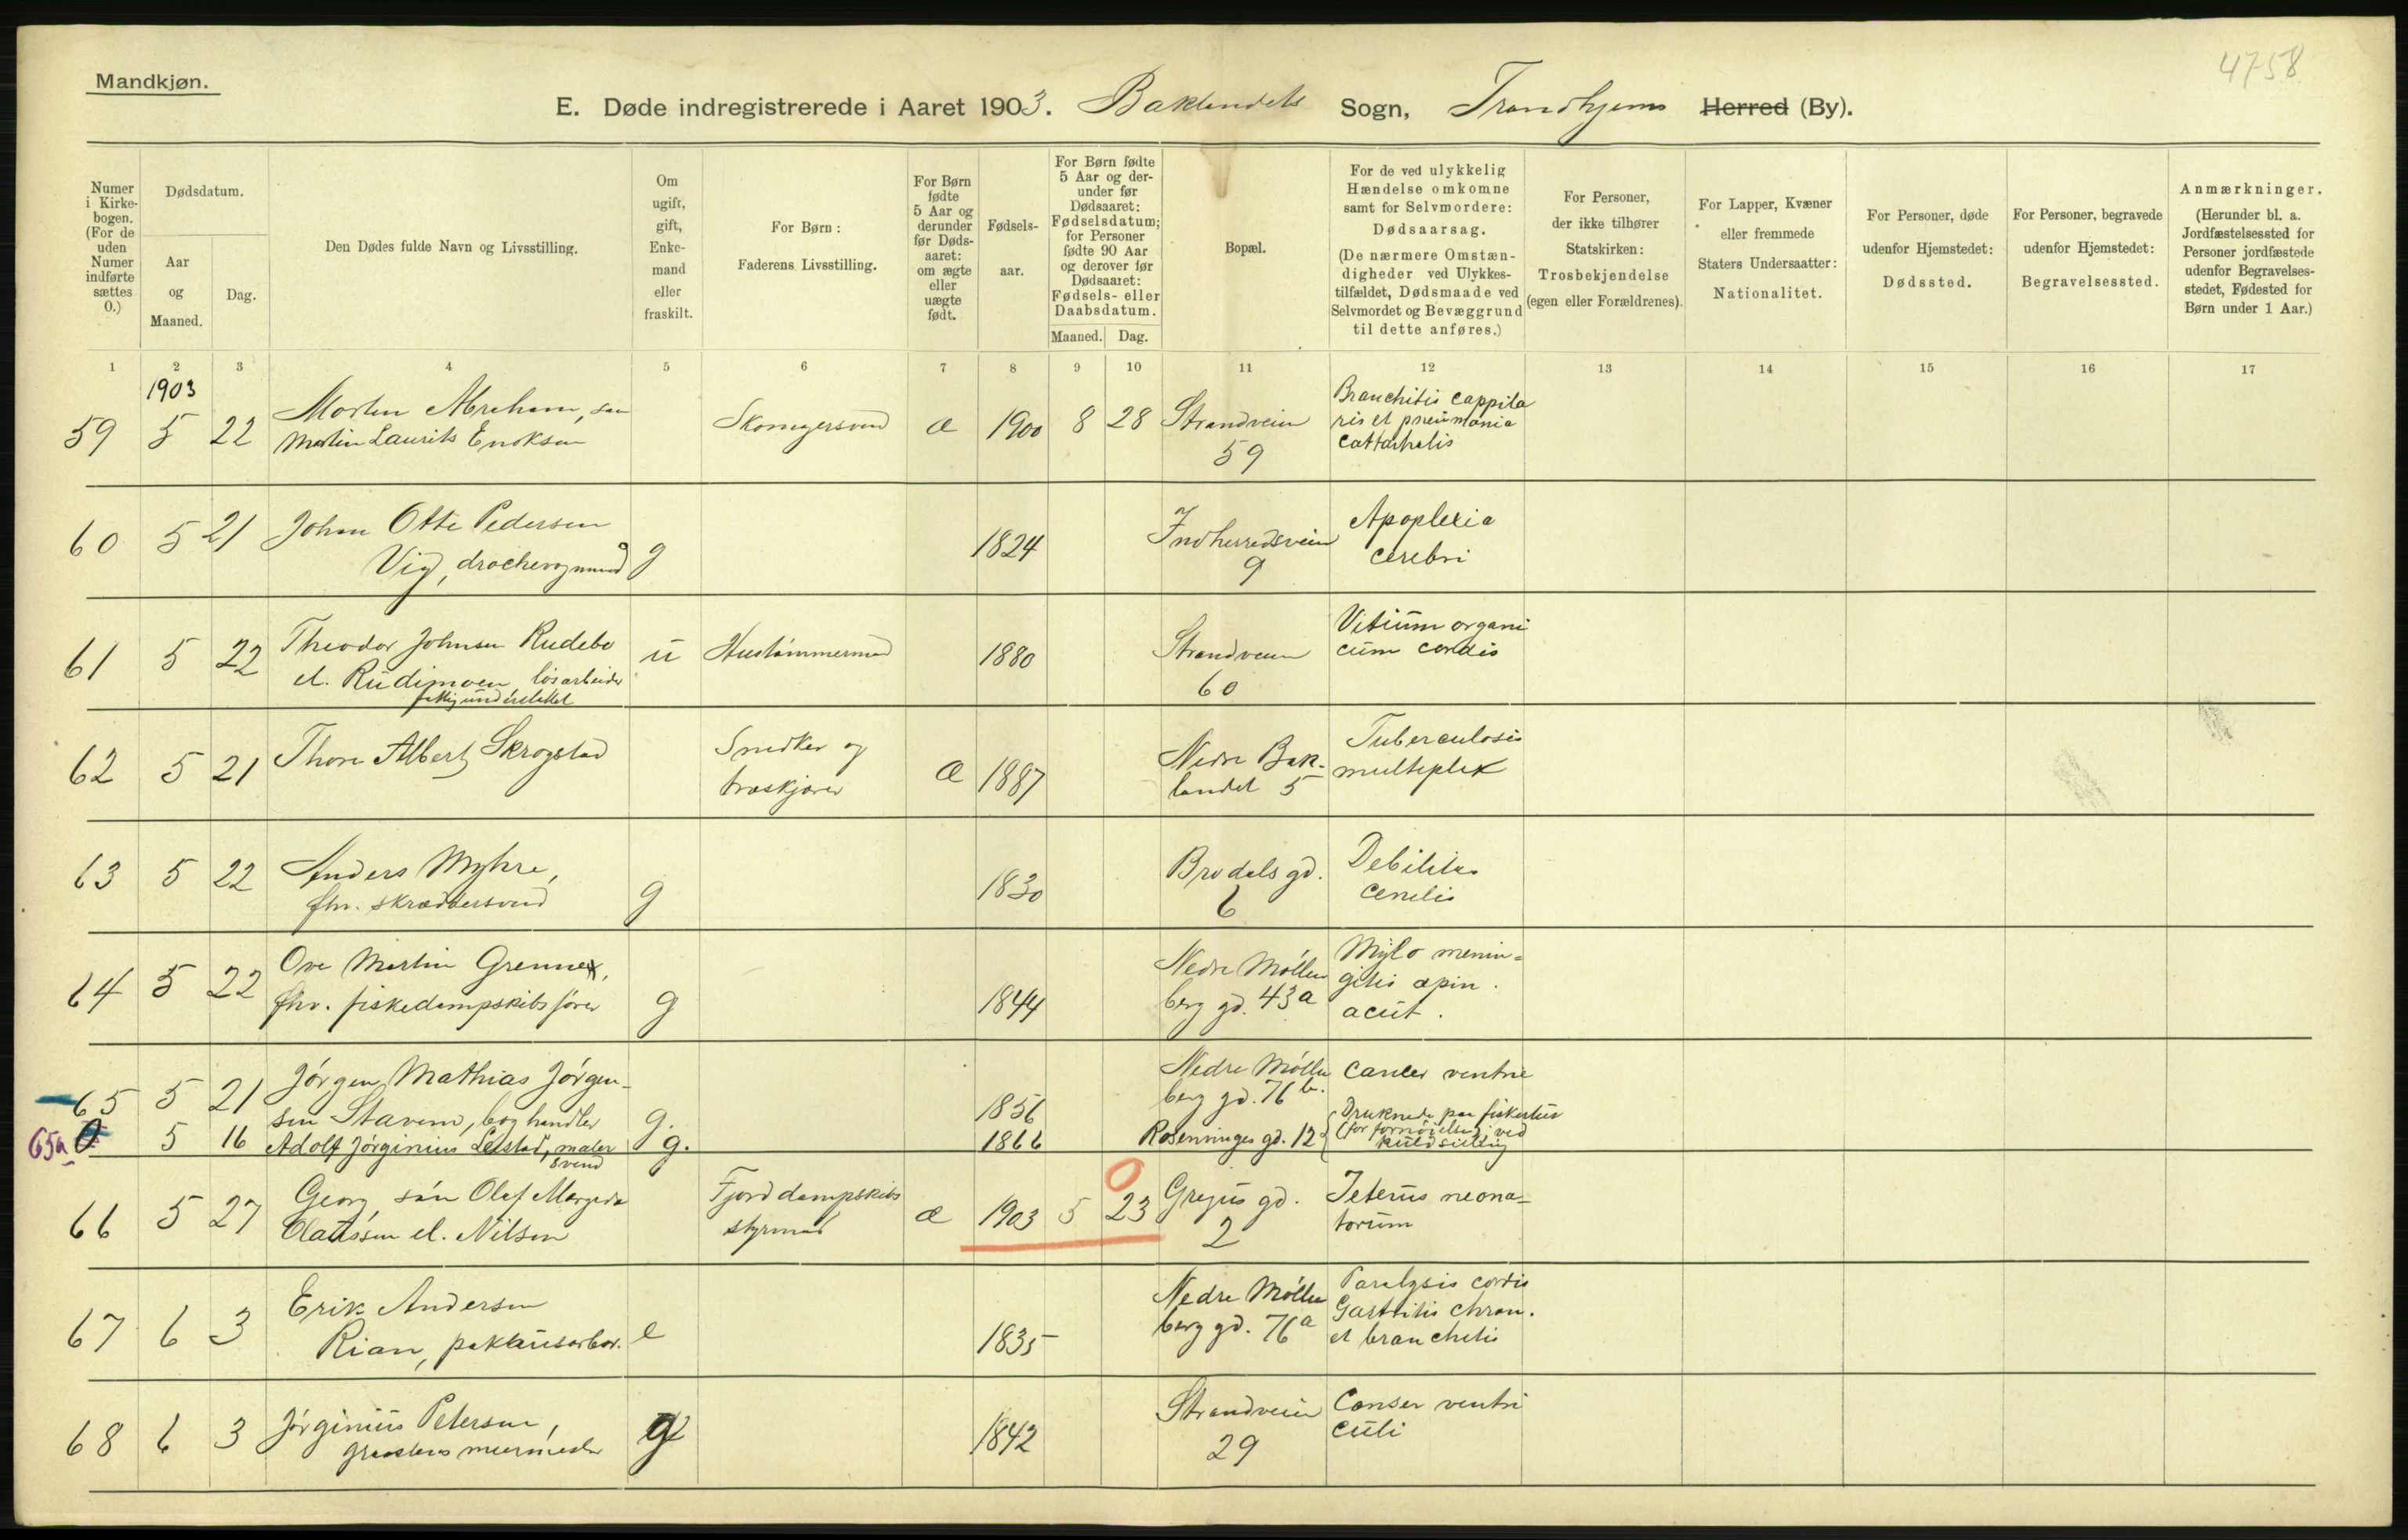 4758
Mandkjøn.
E. Døde indregistrerede i Aaret 1903. Baklandets Sogn, Trondhjems Herred (By).
Numer i Kirkebogen. (For de uden Numer indførte sættes 0.)
Dødsdatum.
Aar og Maaned.
Dag.
Den Dødes fulde Navn og Livsstilling.
Om ugift, gift, Enkemand eller fraskilt.
For Børn: Faderens Livsstilling.
For Børn fødte 5 Aar og derunder før Dødsaaret: om ægte eller uægte født.
Fødselsaar.
For Børn fødte 5 Aar og derunder før Dødsaaret: Fødselsdatum; for Personer fødte 90 Aar og derover før Dødsaaret: Fødsels- eller Daabsdatum.
Maaned. Dag.
Bopæl.
For de ved ulykkelig Hændelse omkomne samt for Selvmordere: Dødsaarsag. (De nærmere Omstændigheder ved Ulykkestilfældet, Dødsmaade ved Selvmordet og Bevæggrund til dette anføres.)
For Personer, der ikke tilhører Statskirken: Trosbekjendelse (egen eller Forældrenes).
For Lapper, Kvæner eller fremmede Staters Undersaatter: Nationalitet.
For Personer, døde udenfor Hjemstedet: Dødssted.
For Personer, begravede udenfor Hjemstedet: Begravelsessted.
Anmærkninger. (Herunder bl. a. Jordfæstelsessted for Personer jordfæstede udenfor Begravelsesstedet, Fødested for Børn under 1 Aar.)
1 2 3 4 5 6 7 8 9 10 11 12 13 14 15 16 17
1903
59 5 22 Morten Abraham, søn Martin Laurits Enoksen Skomagersvend æ 1900 8 28 Strandveien 59 Bronchitis cappilaris et pneumonia cattarhalis
60 5 21 Johan Otte Pedersen Vig, g 1824 Indherredsveien 9 Apoplexia cerebri
61 5 22 Theodor Johnsen Rudebo el. Rudimoen, løsarbeider fattigunderstøttet u Hustømmermand 1880 Strandveien 60 Vitium organicum cordis
62 5 21 Thore Albert Skrogstad Snedker og træskjærer æ 1887 Nedre Baklandet 5 Tuberculosis multiplex
63 5 22 Anders Myhre, fhv. skræddersvend g 1830 gd. 6 Debilitas cenilis
64 5 22 Ove Martin Grenne, fhv. fiskedampskibsfører g 1844 Nedre Møllenberg gd. 43a Mylo meningitis spin. acut.
65 5 21 Jørgen Mathias Jørgensen Stavem, boghandler g. 1856 Nedre Møllenberg gd. 76b. Cancer ventric
65a 0 5 16 Adolf Jørginius Leistad, malersvend g. 1866 Rosenvinges gd. 12 Druknede paa fisketur (for fornøielse) ved kuldseiling
66 5 27 Georg, søn Olaf Margido Olaussen el. Nilsen Fjorddampskibsstyrmand æ 1903 5 23 0 Gregus gd. 2 Icterus neonatorum
67 6 3 Erik Andersen Rian, pakhusarbor. e 1835 Nedre Møllenberg gd. 76a Paralysis cordis Gastritis chron. et bronchitis
68 6 3 Jørginius Petersen, murmester g 1842 Strandveien 29 Canser ventriculi